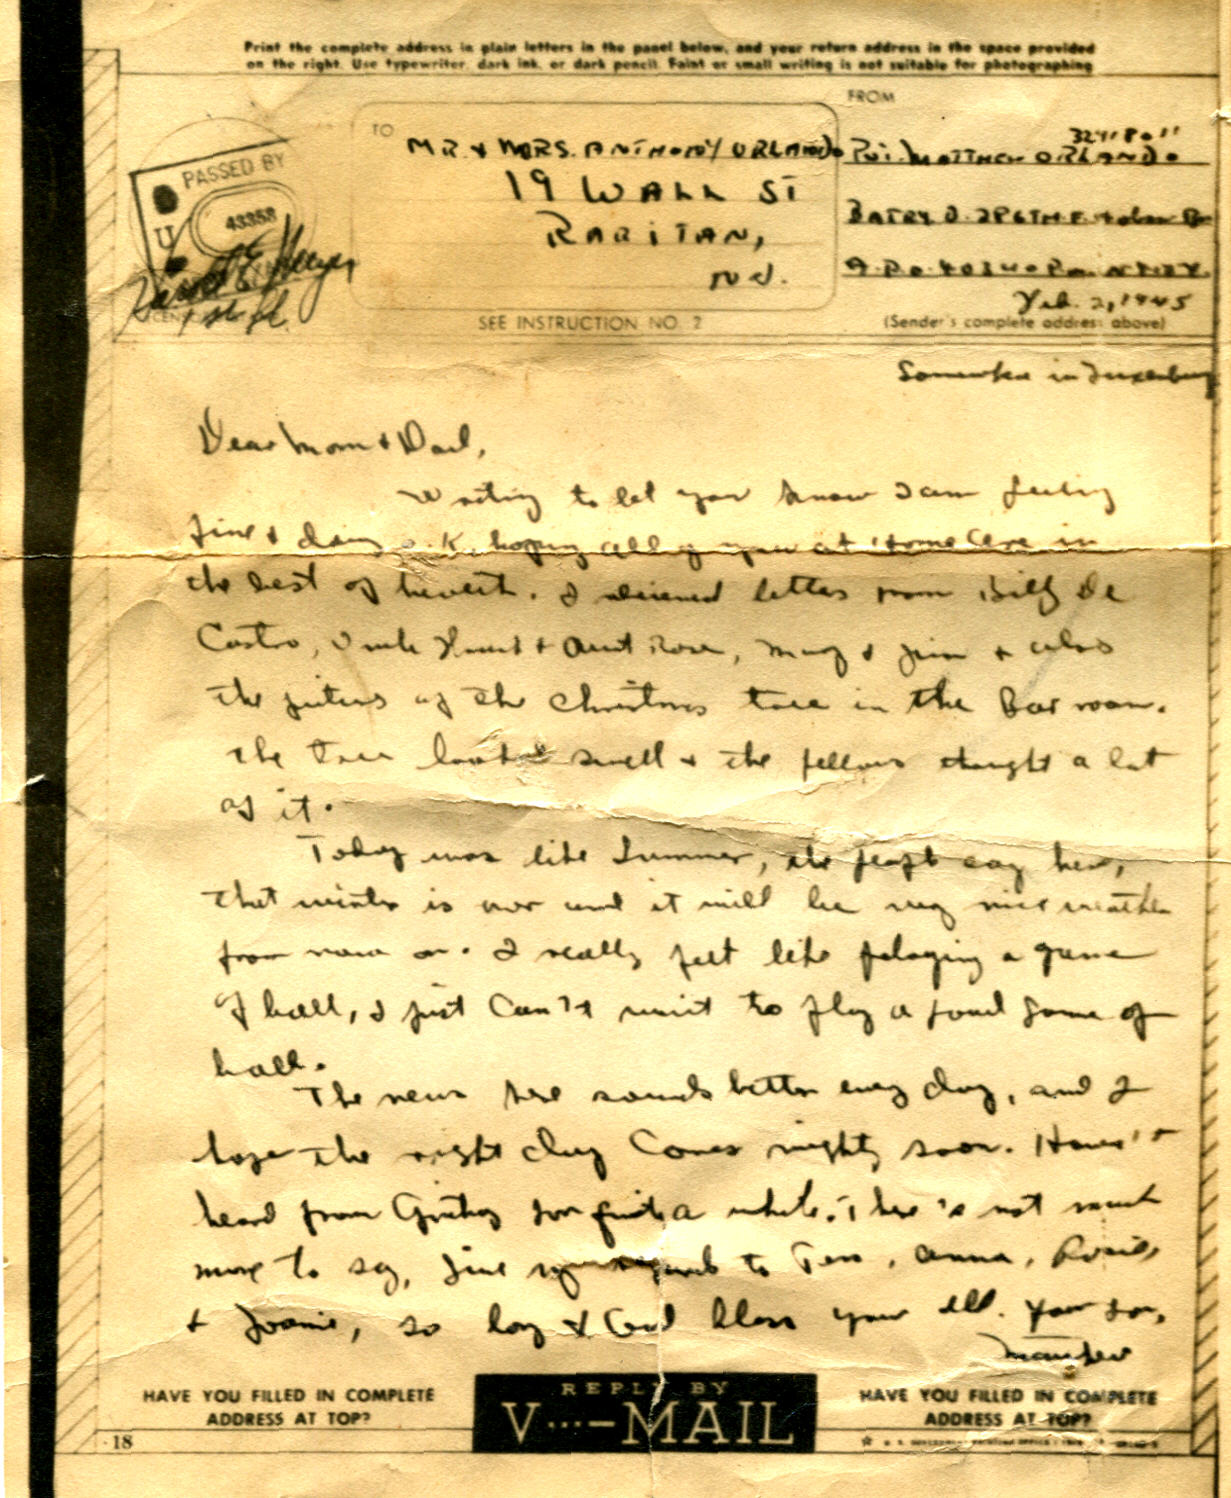 Print the complete address in plain letters in the panel below, and your return address in the space provided
on the right. Use typewriter, dark ink, or dark pencil. Faint or small writing is not suitable for photographing
FROM
TO
MR. & MRS. ANTHONY ORLANDO
19 WALL ST
RARITAN,
N.J.
Pvt. MATTHEW ORLANDO
BATRY D.
A.P.O. 403
Feb. 2, 1945
(Sender's complete address above)
PASSED BY
U
43353
1st Lt
SEE INSTRUCTION NO. 2
Somewhere in Luxenburg
Dear Mom & Dad,
Writing to let you know I am feeling
fine & doing O.K. hoping all of you at home are in
the best of health. I received letters from Billy De
Castro, Uncle & Aunt Rose, & Jim & also
the pictures of the Christmas tree in the Bar room.
The tree looked swell & the fellows thought a lot
of it.
Today was like Summer, the people say here,
that winter is over and it will be very nice weather
from now on. I really felt like playing a game
of ball, I just can't wait to play a good game of
ball.
The news here sounds better every day, and I
hope the right day comes mighty soon. Haven't
heard from for quite a while. There's not much
more to say, give my regards to Tess, Anna, Rosie,
& Joanie, so long & God bless you all. Your son,
Matthew
HAVE YOU FILLED IN COMPLETE
ADDRESS AT TOP?
REPLY BY
V···—MAIL
HAVE YOU FILLED IN COMPLETE
ADDRESS AT TOP?
18